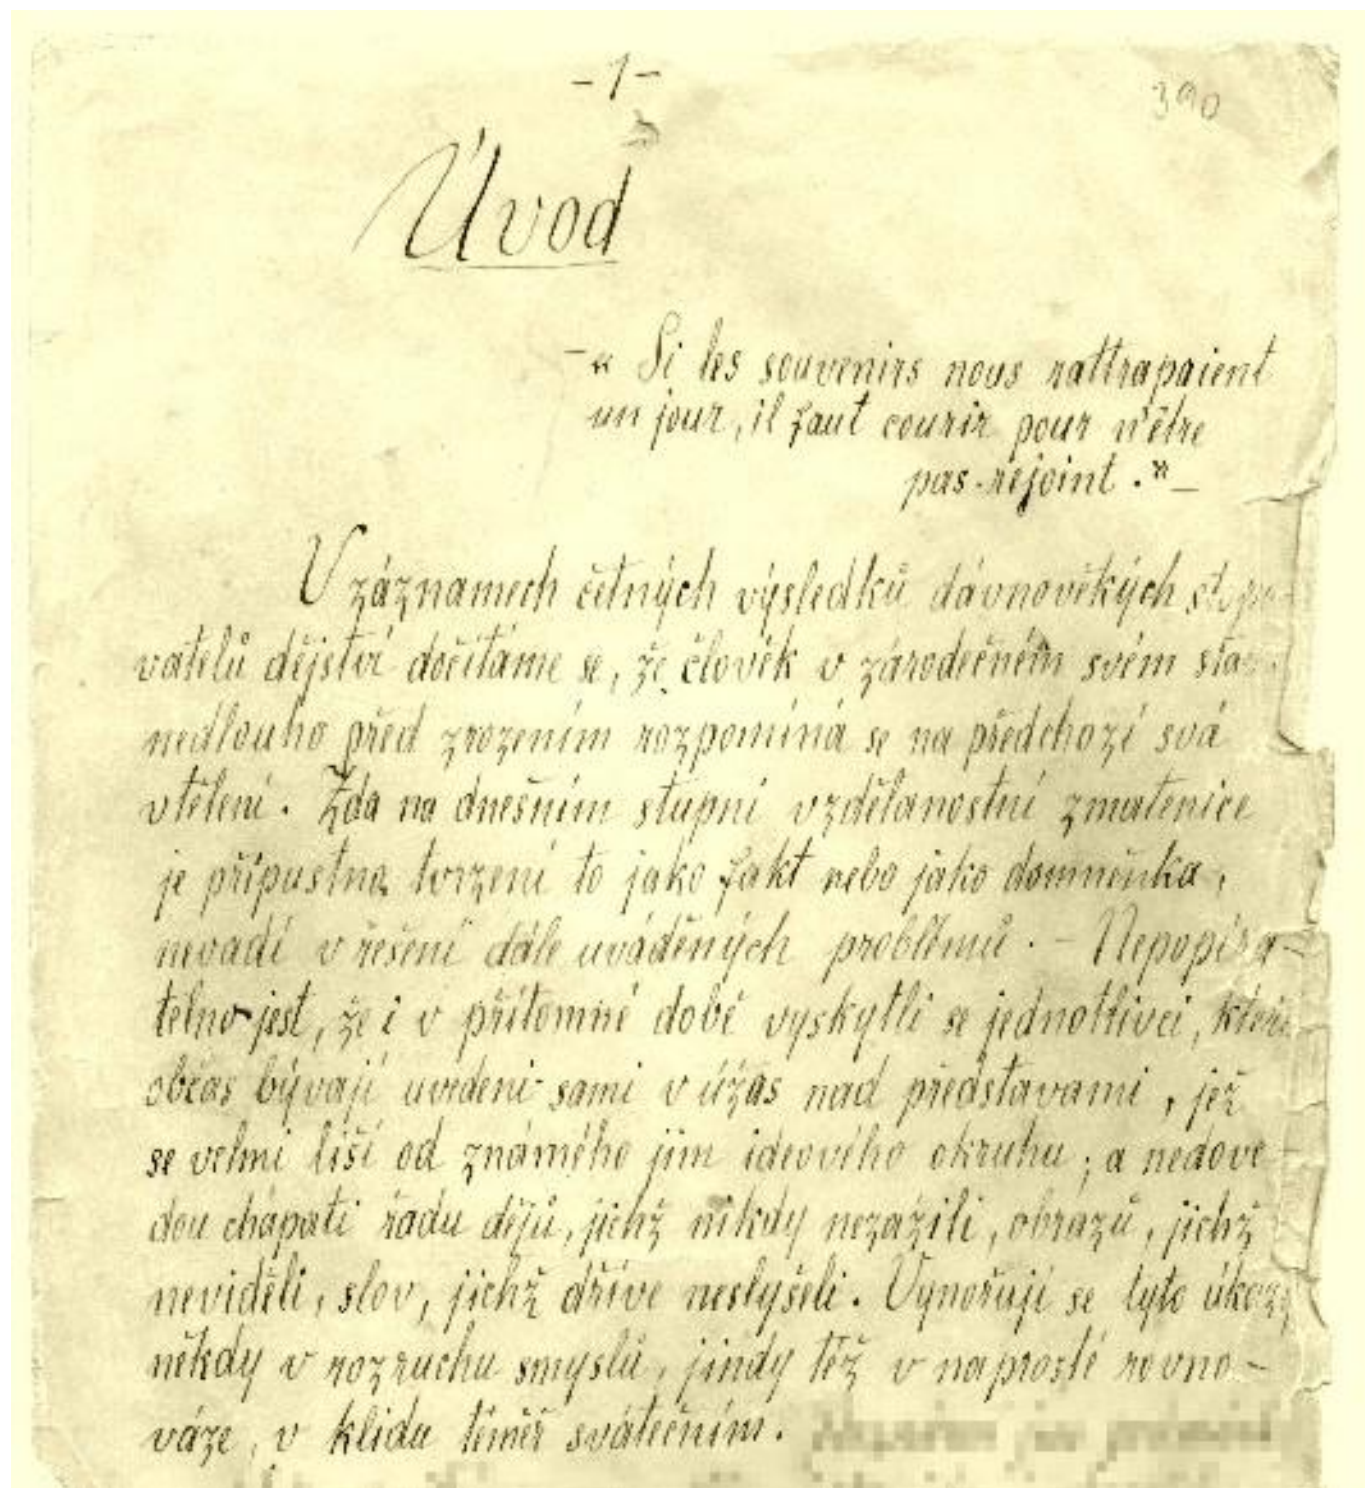 -1-
390
Úvod
-« Si les souvenirs nous rattrapaient
un jour, il faut courir pour n'être
pas rejoint.»-
V záznamech četných výsledků dávnověkých
vatelů dějství dočítáme se, že člověk v zárodečném svém
nedlouho před zrozením rozpomíná se na předchozí svá
vtělení. Zda na dnešním stupni vzdělanostní zmatenice
je přípustno tvrzení to jako fakt nebo jako domněnka,
nevadí v řešení dále uváděných problémů. - Nepopíra-
telno jest, že i v přítomné době vyskytli se jednotlivci, kteří
občas bývají uvedeni sami v úžas nad představami, jež
se velmi liší od známého jim ideového okruhu; a nedove-
dou chápati řadu dějů, jichž nikdy nezažili, obrazů, jichž
neviděli, slov, jichž dříve neslyšeli. Vynořují se tyto úkazy
někdy v rozruchu smyslů, jindy též v naprosté rovno-
váze, v klidu téměř svátečním.